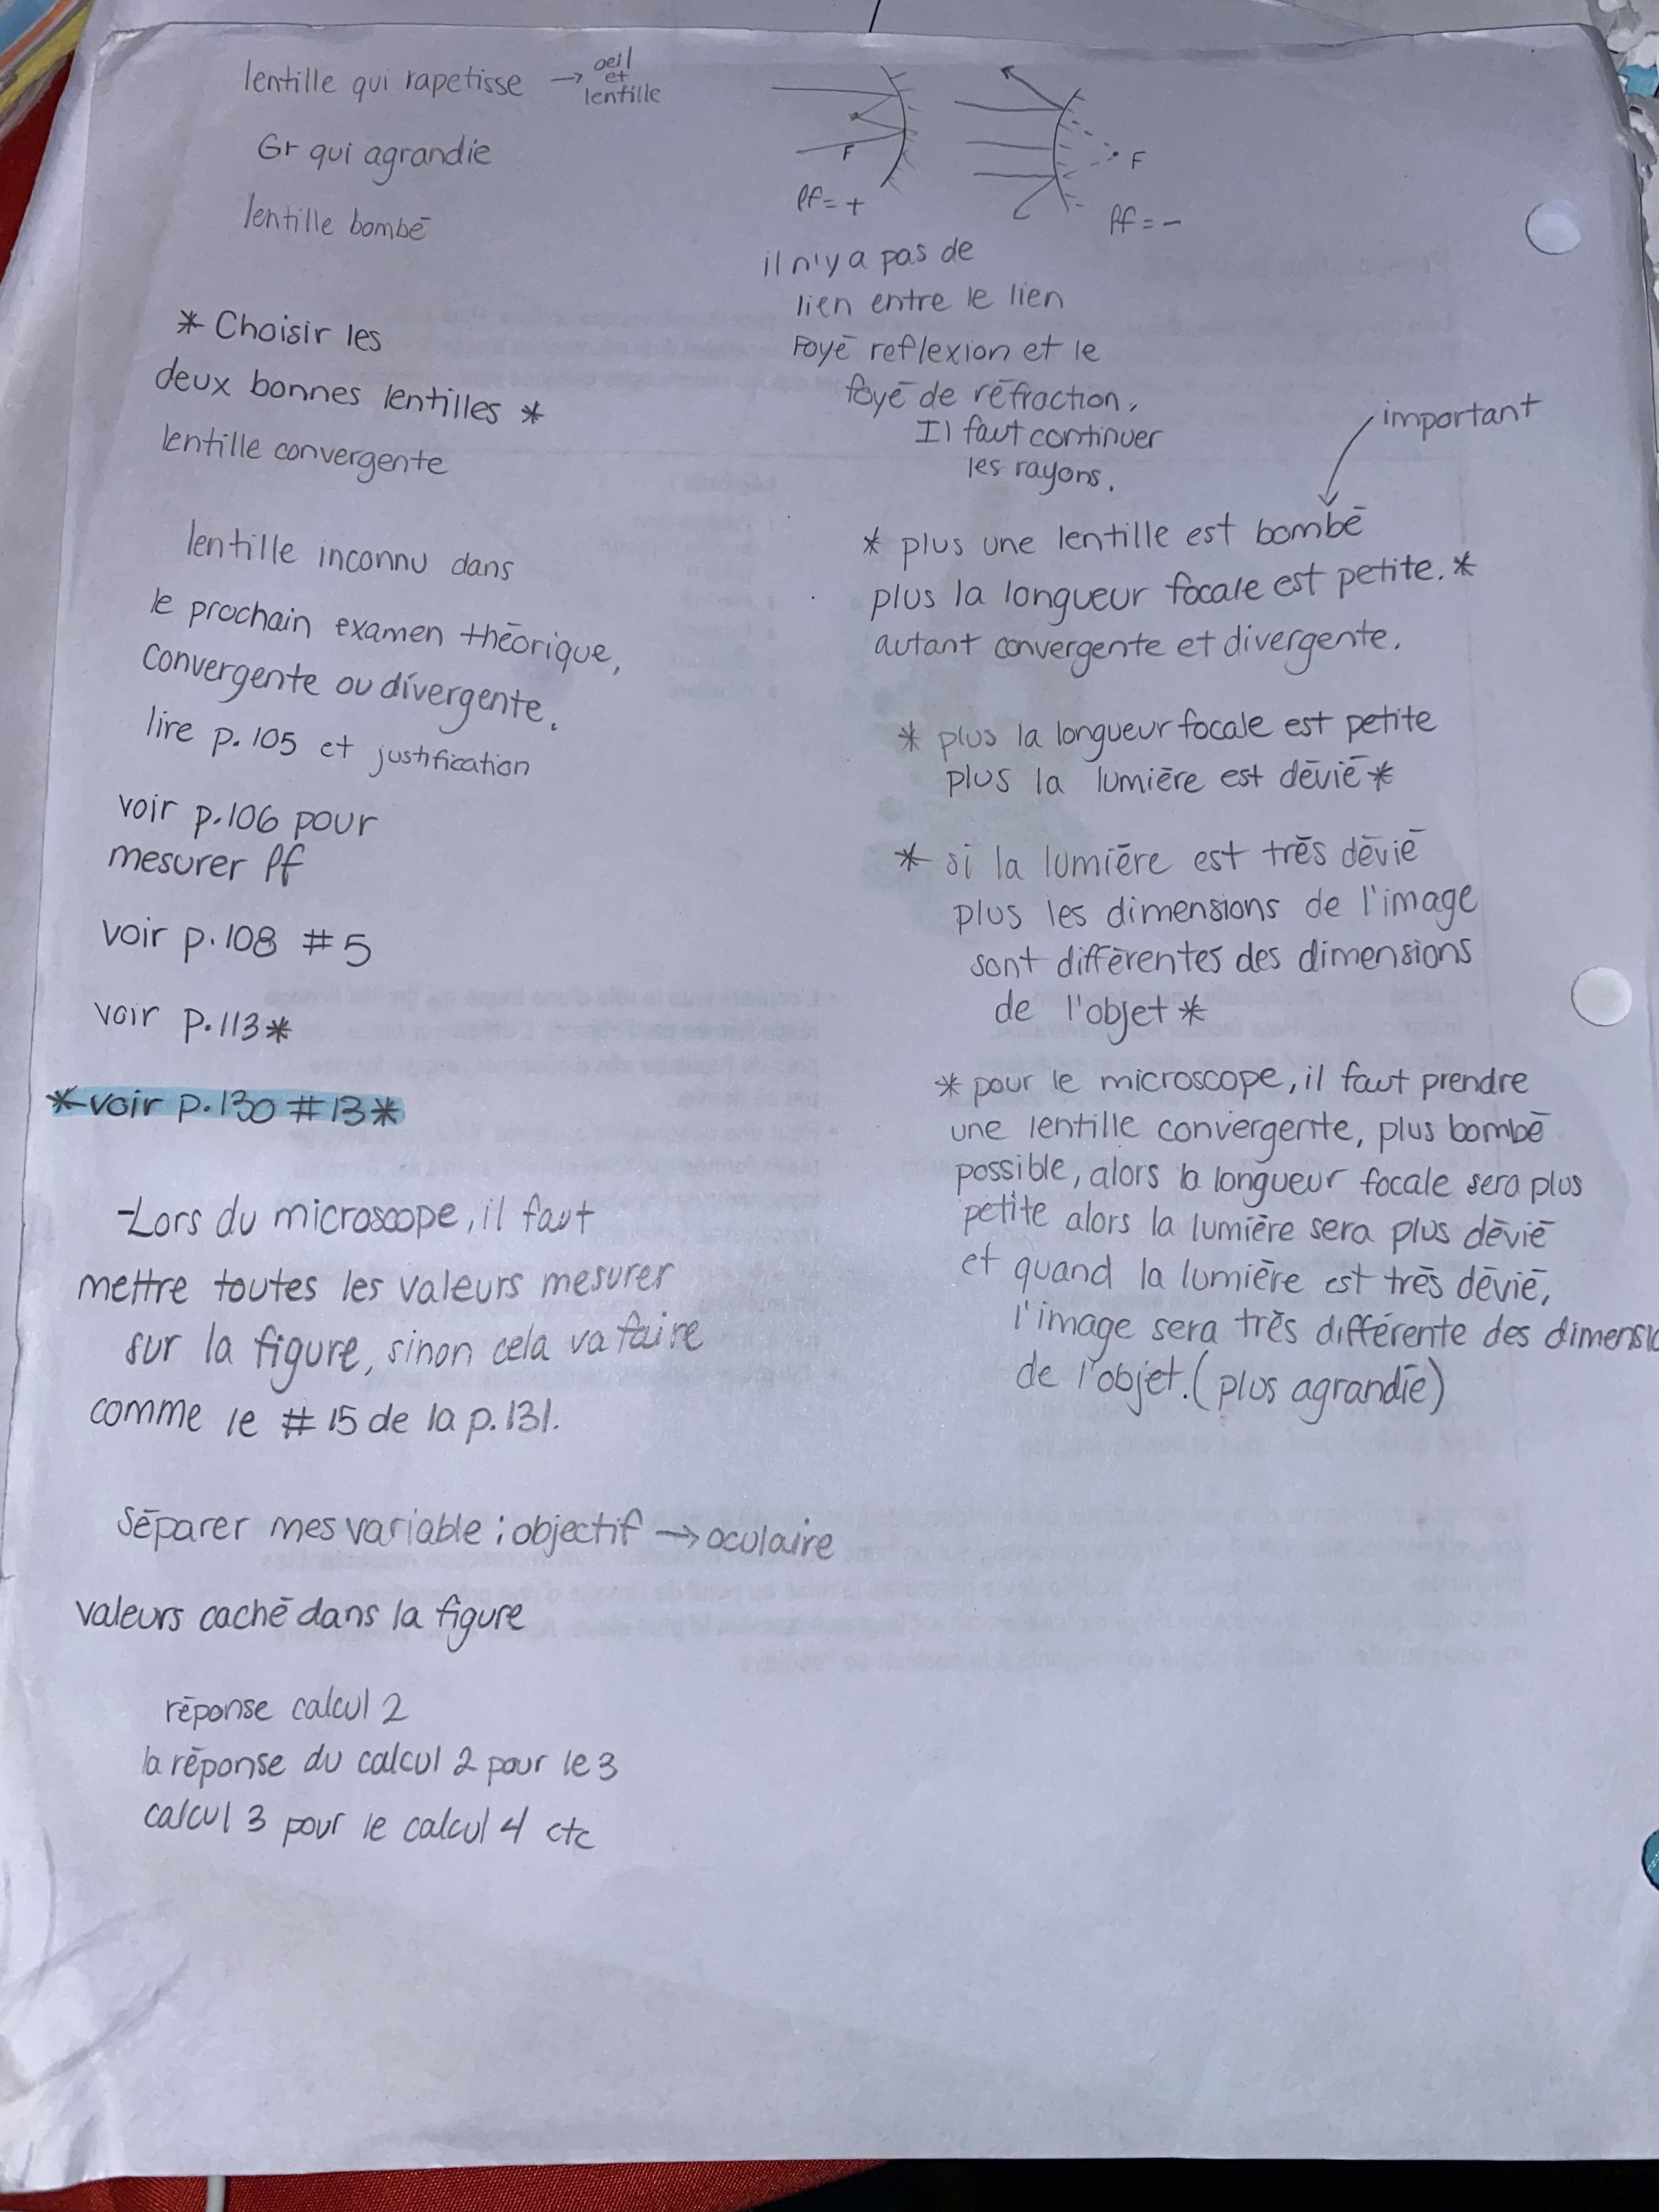 lentille qui rapetisse → oeil
et
lentille
Gr qui agrandie
lentille bombé
* Choisir les
deux bonnes lentilles *
lentille convergente
lentille inconnu dans
le prochain examen théorique,
convergente ou divergente.
lire p.105 et justification
voir p.106 pour
mesurer lf
voir p.108 #5
voir p.113*
*voir p.130 #13*
-Lors du microscope, il faut
mettre toutes les valeurs mesurer
sur la figure, sinon cela va faire
comme le #15 de la p.131.
Séparer mes variable : objectif → oculaire
valeurs caché dans la figure
réponse calcul 2
la réponse du calcul 2 pour le 3
calcul 3 pour le calcul 4 etc
F
lf = +
F
lf = -
il n'y a pas de
lien entre le lien
Foyé reflexion et le
foyé de réfraction.
Il faut continuer
les rayons.
important
* plus une lentille est bombé
plus la longueur focale est petite. *
autant convergente et divergente.
* plus la longueur focale est petite
plus la lumière est dévié *
* si la lumière est très dévié
plus les dimensions de l'image
sont différentes des dimensions
de l'objet *
* pour le microscope, il faut prendre
une lentille convergente, plus bombé
possible, alors la longueur focale sera plus
petite alors la lumière sera plus dévié
et quand la lumière est très dévié,
l'image sera très différente des dimensio
de l'objet. (plus agrandie)